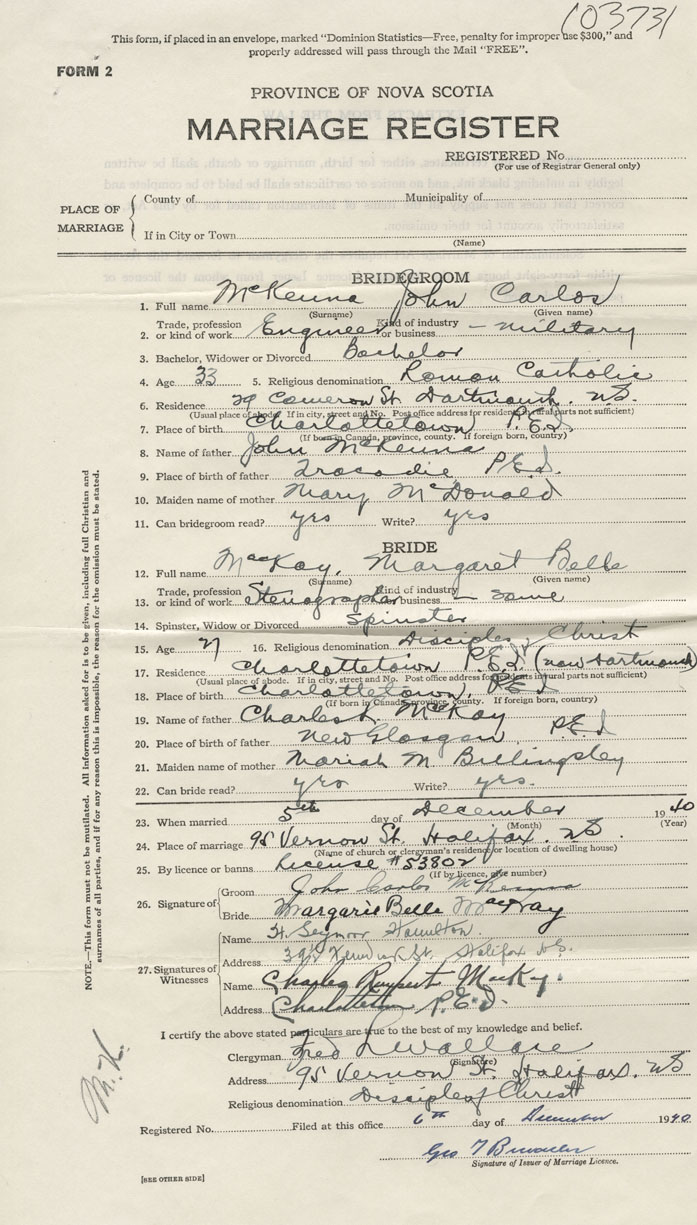 103731
This form, if placed in an envelope, marked "Dominion Statistics—Free, penalty for improper use $300," and
properly addressed will pass through the Mail "FREE".
FORM 2
PROVINCE OF NOVA SCOTIA
MARRIAGE REGISTER
REGISTERED No.
(For use of Registrar General only)
PLACE OF MARRIAGE
County of Municipality of
If in City or Town
(Name)
BRIDEGROOM
1. Full name McKenna John Carlos
(Surname) (Given name)
2. Trade, profession or kind of work Engineer Kind of industry or business - military
3. Bachelor, Widower or Divorced Bachelor
4. Age 33 5. Religious denomination Roman Catholic
6. Residence 29 Cameron St. Dartmouth. N.S.
(Usual place of abode. If in city, street and No. Post office address for residents in rural parts not sufficient)
7. Place of birth Charlottetown P.E.I.
(If born in Canada, province, county. If foreign born, country)
8. Name of father John McKenna
9. Place of birth of father Tracadie P.E.I.
10. Maiden name of mother Mary McDonald
11. Can bridegroom read? yes Write? yes
BRIDE
12. Full name MacKay, Margaret Belle
(Surname) (Given name)
13. Trade, profession or kind of work Stenographer Kind of industry or business — same
14. Spinster, Widow or Divorced Spinster
15. Age 16. Religious denomination Disciples of Christ
17. Residence Charlottetown P.E.I. (now Dartmouth)
(Usual place of abode. If in city, street and No. Post office address for residents in rural parts not sufficient)
18. Place of birth Charlottetown, P.E.I.
(If born in Canada, province, county. If foreign born, country)
19. Name of father Charles McKay
20. Place of birth of father New Glasgow P.E.I
21. Maiden name of mother Mariah M. Billingsley
22. Can bride read? yes Write? yes.
23. When married 5th day of December 1940
(Month) (Year)
24. Place of marriage 95 Vernon St. Halifax. N.S.
(Name of church or clergyman's residence or location of dwelling house)
25. By licence or banns License #53802
(If by licence, give number)
26. Signature of
Groom John Carlos McKenna
Bride Margarie Belle MacKay
27. Signatures of Witnesses
Name H. Seymor Hamilton.
Address St. Halifax N.S.
Name Charles Ruppert MacKay.
Address Charlottetown P.E.I.
I certify the above stated particulars are true to the best of my knowledge and belief.
Clergyman Fred Wallace
(Signature)
Address 95 Vernon St. Halifax. N.S
Religious denomination Disciple of Christ
Registered No. Filed at this office 6th day of December 1940
Geo
Signature of Issuer of Marriage Licence.
[SEE OTHER SIDE]
NOTE.—This form must not be mutilated. All information asked for is to be given, including full Christian and
surnames of all parties, and if for any reason this is impossible, the reason for the omission must be stated.
M.K.